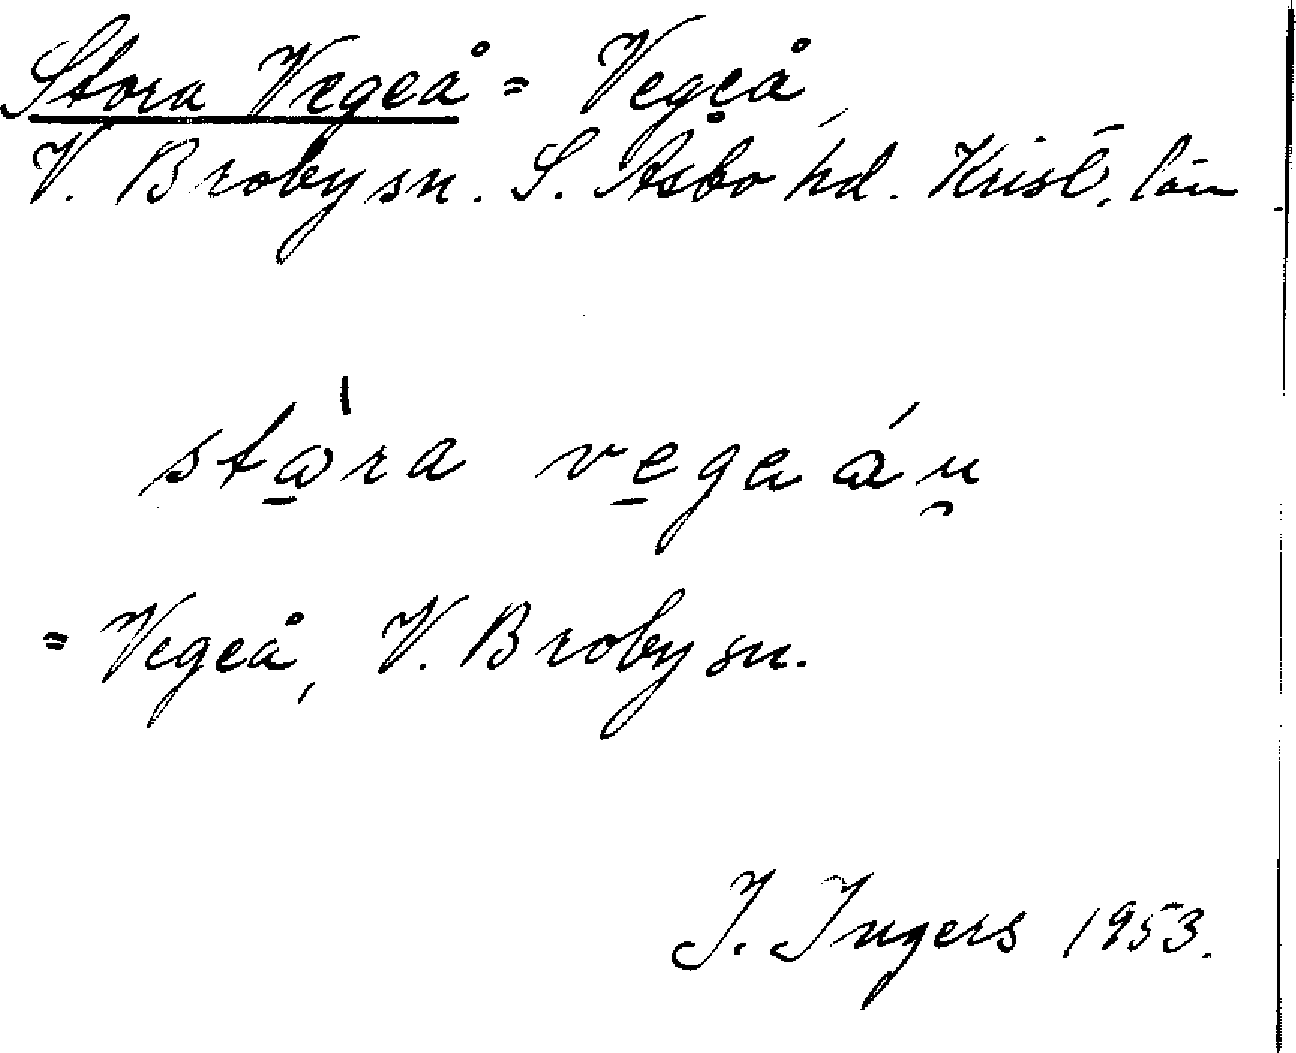 Stora Vegeå = Vegeå,
V. Broby sn. S. Åsbo hd. Krist. län
stὼ̲ra ve̲gaáu̯
= Vegeå, V. Broby sn.
J. Ingers 1953.